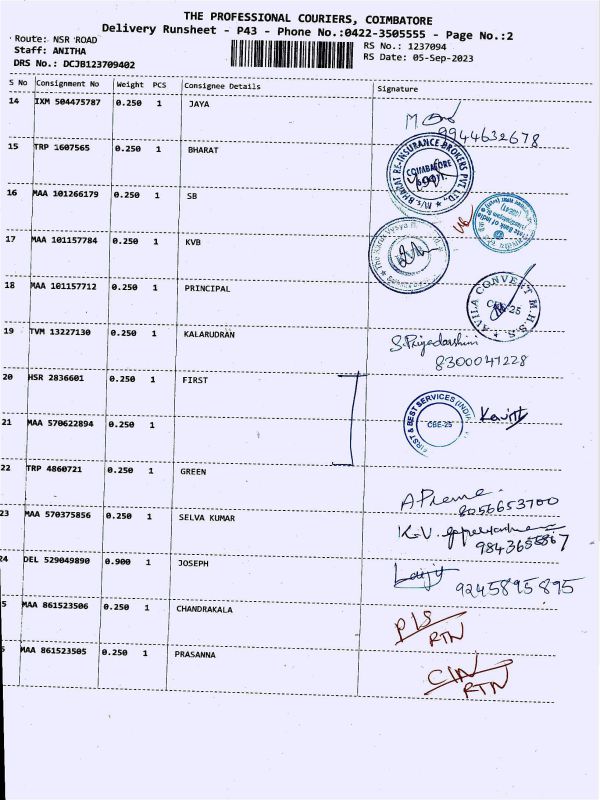 THE PROFESSIONAL COURIERS, COIMBATORE
Delivery Runsheet - P43 - Phone No.:0422-3505555 - Page No.:2
Route: NSR ROAD
RS No.: 1237094
Staff: ANITHA
RS Date: 05-Sep-2023
DRS No.: DCJB123709402
S No Consignment No Weight PCS Consignee Details Signature
14 IXM 504475787 0.250 1 JAYA
9944632678
15 TRP 1607565 0.250 1 BHARAT
M/s BHARAT RE-INSURANCE BROKERS PVT. LTD.,
COIMBATORE
16 MAA 101266179 0.250 1 SB
17 MAA 101157784 0.250 1 KVB
18 MAA 101157712 0.250 1 PRINCIPAL
AVILA CONVENT M.H.S.S.
CBE-25
19 TVM 13227130 0.250 1 KALARUDRAN
S. Priyadarshini
8300047228
20 HSR 2836601 0.250 1 FIRST
FIRST & BEST SERVICES (INDIA)
CBE-25
21 MAA 570622894 0.250 1
22 TRP 4860721 0.250 1 GREEN
A Prema
8056653700
23 MAA 570375856 0.250 1 SELVA KUMAR
K.V.
24 DEL 529049890 0.900 1 JOSEPH
9245895895
5 MAA 861523506 0.250 1 CHANDRAKALA
P/S
RTN
6 MAA 861523505 0.250 1 PRASANNA
RTN